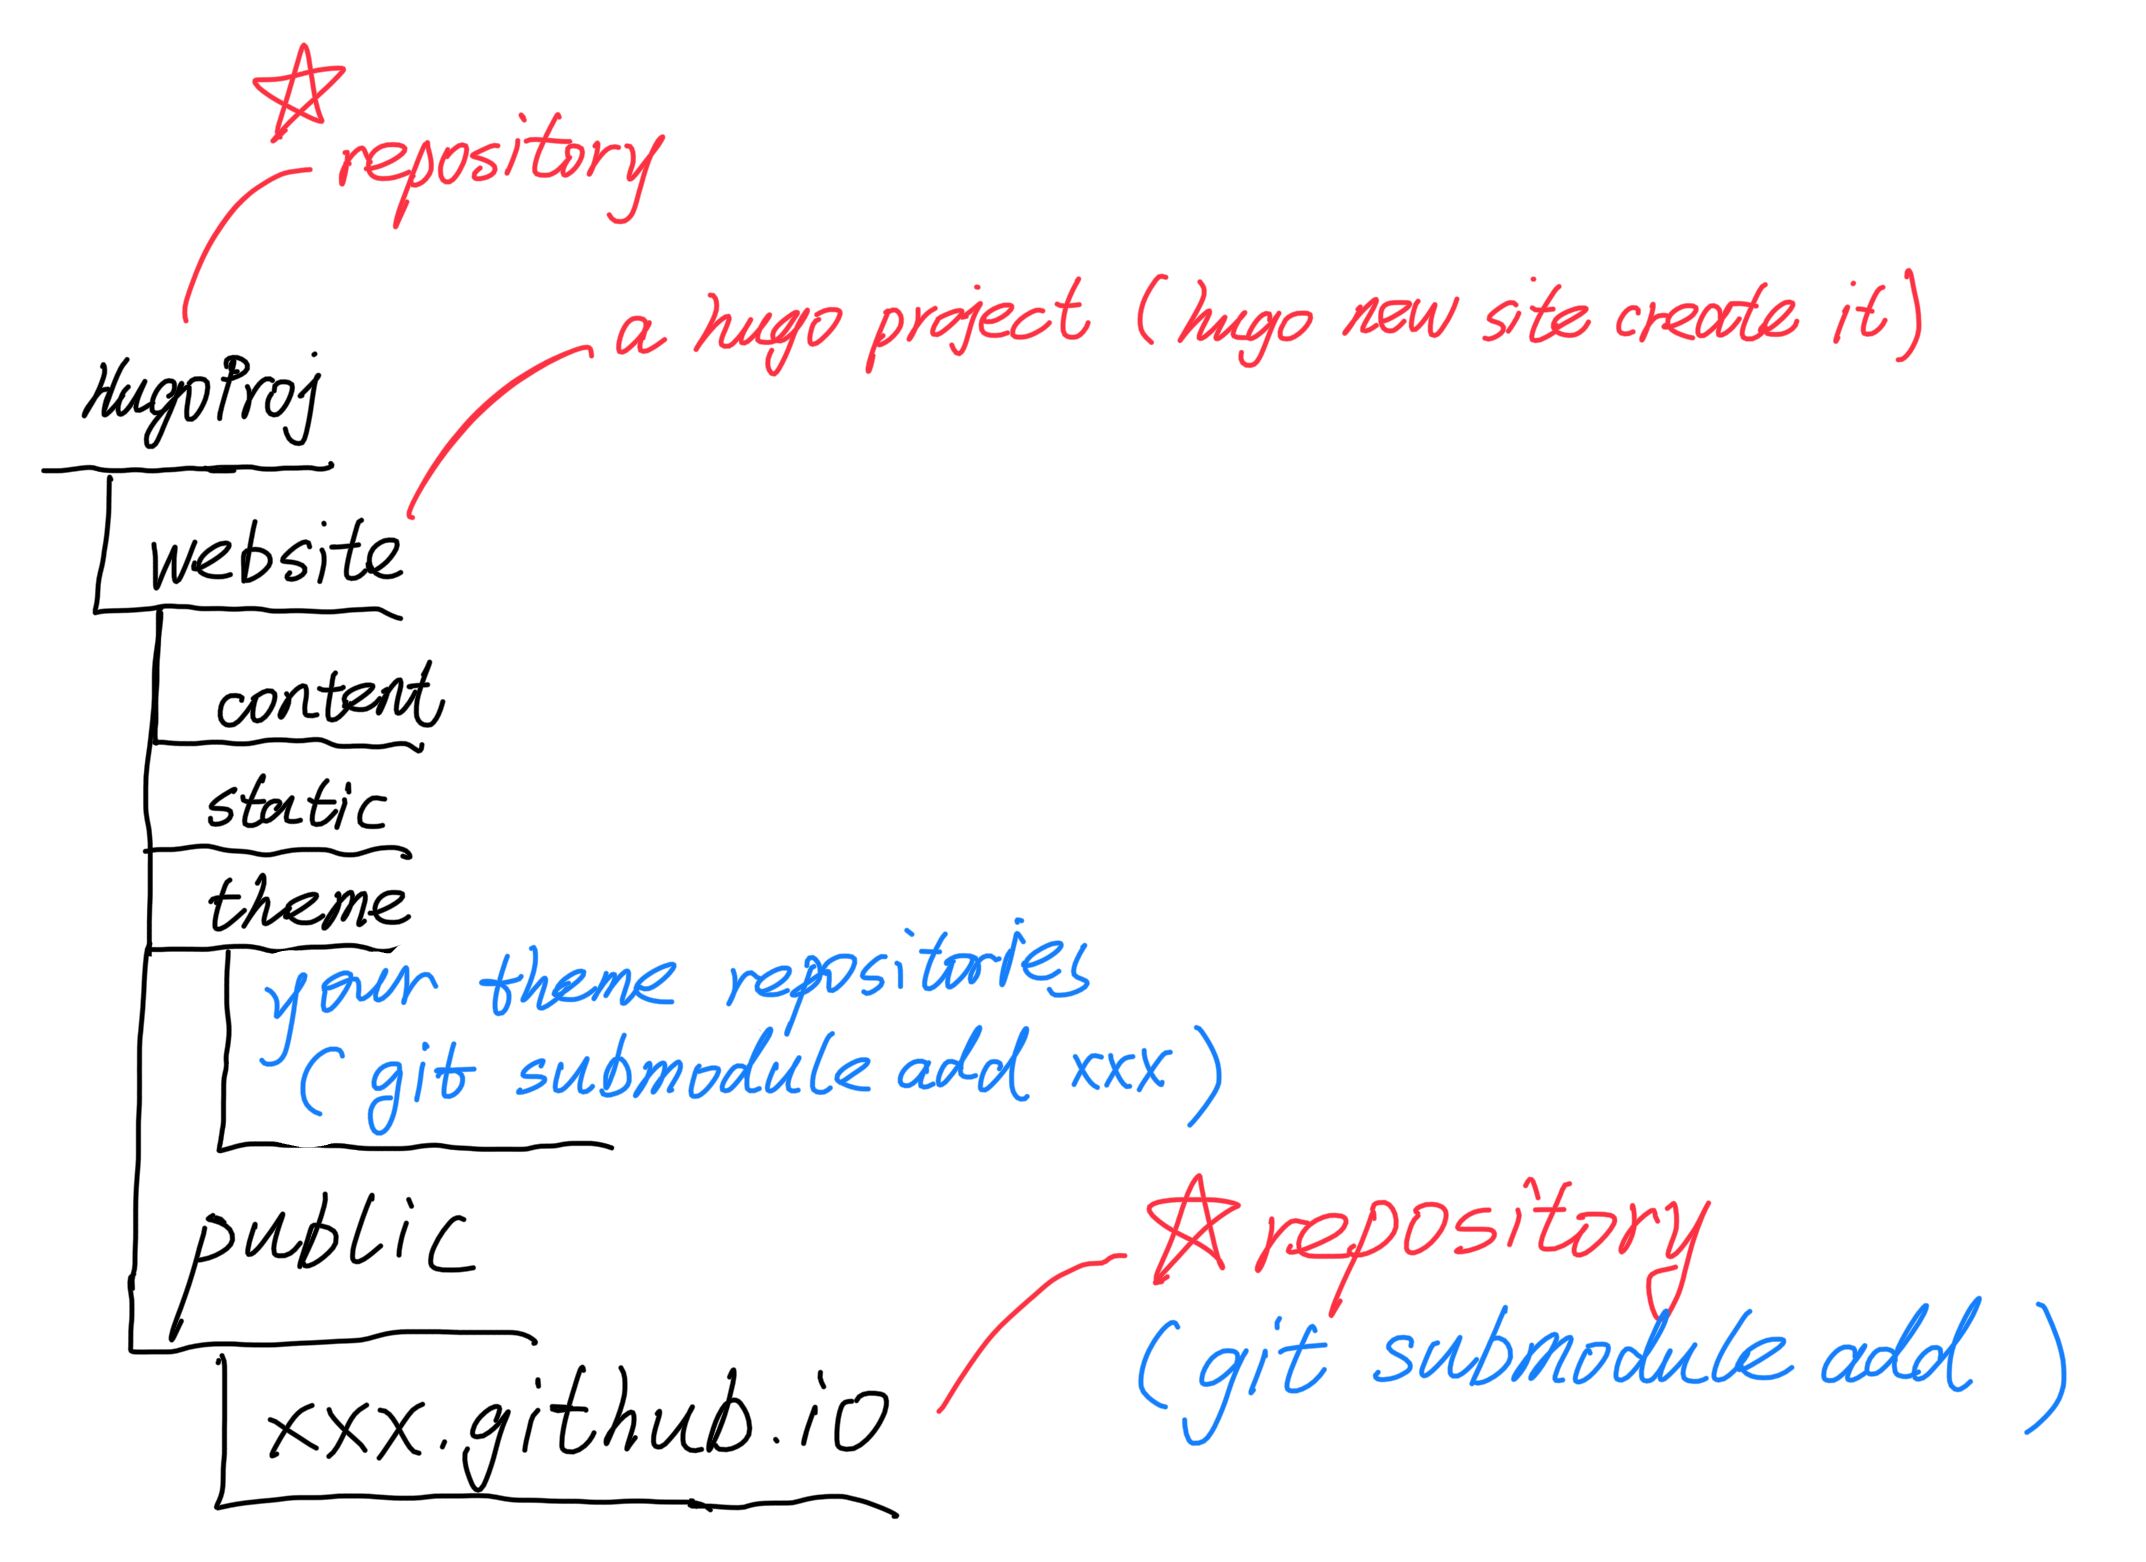 repository
a hugo project (hugo new site create it)
HugoProj
website
content
static
theme
your theme repositories
(git submodule add xxx)
public
repository
(git submodule add )
xxx.github.io